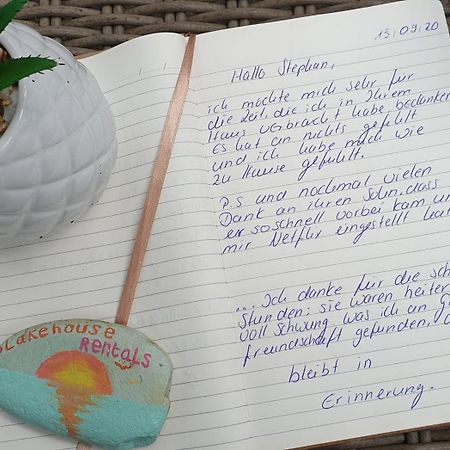 13/09/20
Hallo Stephan,
ich möchte mich sehr für
die Zeit, die ich in Ihrem
Haus verbracht habe bedanken
Es hat an nichts gefühlt
und ich habe mich wie
zu Hause gefühlt.
P.S und nochmal vielen
Dank an ihren Sohn, dass
er so schnell vorbei kam un
mir Netflix eingestellt hat
... Ich danke für die sch
Stunden: sie waren heiter
voll Schwung, was ich an G
freundschaft gefunden,
bleibt in
Erinnerung.
Lakehouse
Rentals